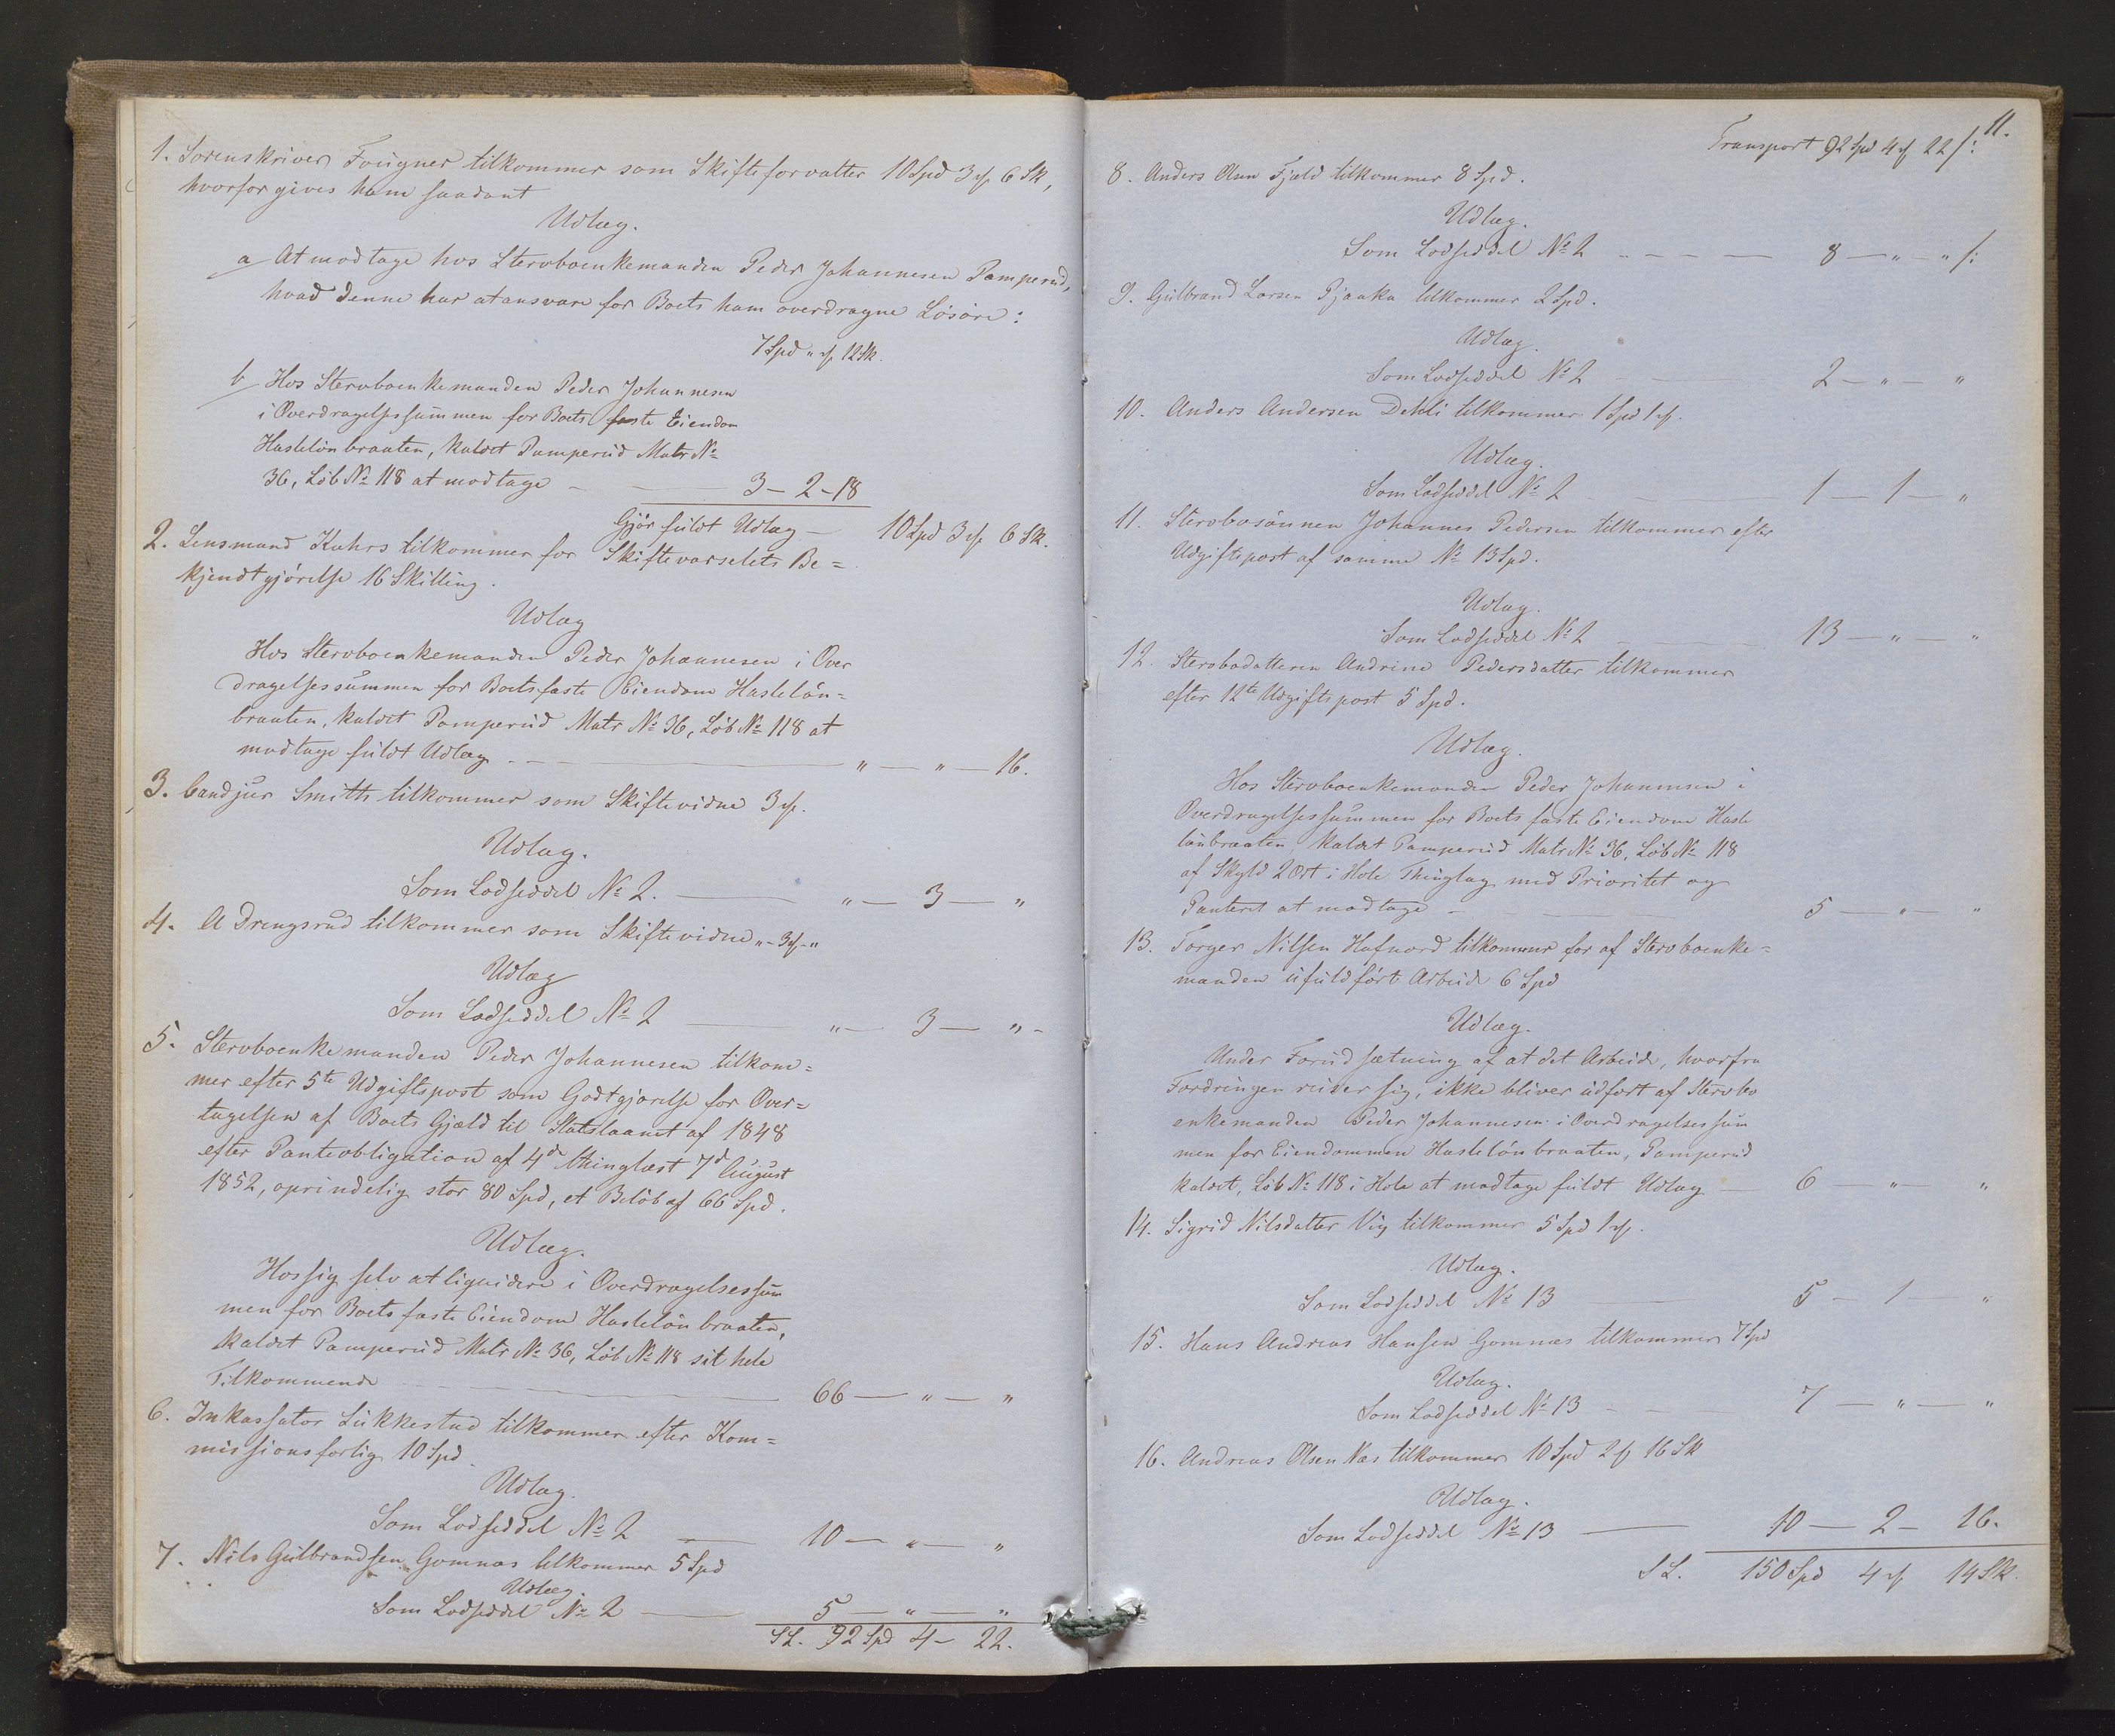 1. Sorenskriver Fougner tilkommer som Skifteforvalter 10 Spd 3 ₰ 6 Sk,
hvorfor gives ham saadant
Udlæg.
a At modtage hos Stervboenkemanden Peder Johannesen Pamperud,
hvad denne har at ansvare for Boets ham overdragne Lösöre:
7 Spd " ₰ 12 Sk.
b Hos Stervboenkemanden Peder Johannesen
i Overdragelsessummen for Boets faste Eiendom
Haslelönbraaten, kaldet Pamperud Matr №
36, Löb № 118 at modtage — 3 - 2 - 18
Gjör fuldt Udlæg — 10 Spd 3 ₰ 6 Sk.
2. Lensmand Kuhrs tilkommer for Skiftevarselets Be=
kjendtgjörelse 16 Skilling.
Udlæg
Hos Stervboenkemanden Peder Johannesen i Over
dragelsessummen for Boets faste Eiendom Haslelön=
braaten, kaldet Pamperud Matr № 36, Löb № 118 at
modtage fuldt Udlæg. — " — " — 16.
3. Cand jur Smith tilkommer som Skiftevidne 3 ₰.
Udlæg.
Som Lodseddel № 2. — " — 3 — "
4. A Drengsrud tilkommer som Skiftevidne " - 3 ₰ - "
Udlæg
Som Lodseddel № 2 — " — 3 — " -
5. Stervboenkemanden Peder Johannesen tilkom=
mer efter 5te Udgiftspost som Godtgjörelse for Over=
tagelsen af Boets Gjæld til Statslaanet af 1848
efter Panteobligation af 4de thinglæst 7d August
1852, oprindelig stor 80 Spd, et Belöb af 66 Spd.
Udlæg.
Hos sig selv at liquidere i Overdragelsessum
men for Boets faste Eiendom Haslelönbraaten,
kaldet Pamperud Matr № 36, Löb № 118 sit hele
Tilkommende — 66 — " — "
6. Inkassator Lukkestad tilkommer efter Kom=
missionsforlig 10 Spd.
Udlæg.
Som Lodseddel № 2 — 10 — " — "
7. Nils Gulbrandsen Gomnæs tilkommer 5 Spd
Udlæg.
Som Lodseddel № 2 — 5 — " — "
SL. 92 Spd 4 - 22.
11.
Transport 92 Spd 4 ₰ 22 /:
8. Anders Olsen Fjeld tilkommer 8 Spd.
Udlæg.
Som Lodseddel № 2 — 8 — " — " /:
9. Gulbrand Larsen Pjaaka tilkommer 2 Spd.
Udlæg.
Som Lodseddel № 2 — 2 — " — "
10. Anders Andersen Dehli tilkommer 1 Spd 1 ₰.
Udlæg.
Som Lodseddel № 2 — 1 — 1 — "
11. Stervbosönnen Johannes Pedersen tilkommer efter
Udgiftspost af samme № 13 Spd.
Udlæg.
Som Lodseddel № 2 — 13 — " — "
12. Stervbodatteren Andrine Pedersdatter tilkommer
efter 12te Udgiftspost 5 Spd.
Udlæg.
Hos Stervboenkemanden Peder Johannesen i
Overdragelsessummen for Boets faste Eiendom Hasle
lönbraaten, kaldet Pamperud Matr № 36, Löb № 118
af Skyld 2 Ort i Hole Thinglag med Prioritet og
Panteret at modtage — 5 — " — "
13. Torger Nilsen Hafnord tilkommer for af Stervboenke=
manden ufuldfört Arbeide 6 Spd
Udlæg.
Under Forudsætning af at det Arbeide, hvorfra
Fordringen reiser sig, ikke bliver udfört af Stervbo
enkemanden Peder Johannesen i Overdragelsessum
men for Eiendommen Haslelönbraaten, Pamperud
kaldet, Löb № 118 i Hole at modtage fuldt Udlæg — 6 — " — "
14. Sigrid Nilsdatter Vig tilkommer 5 Spd 1 ₰.
Udlæg.
Som Lodseddel № 13 — 5 — 1 — "
15. Hans Andreas Hansen Gomnæs tilkommer 7 Spd
Udlæg.
Som Lodseddel № 13 — 7 — " — "
16. Andreas Olsen Næs tilkommer 10 Spd 2 ₰ 16 Sk
Udlæg.
Som Lodseddel № 13 — 10 — 2 — 16.
SL. 150 Spd 4 ₰ 14 Sk.